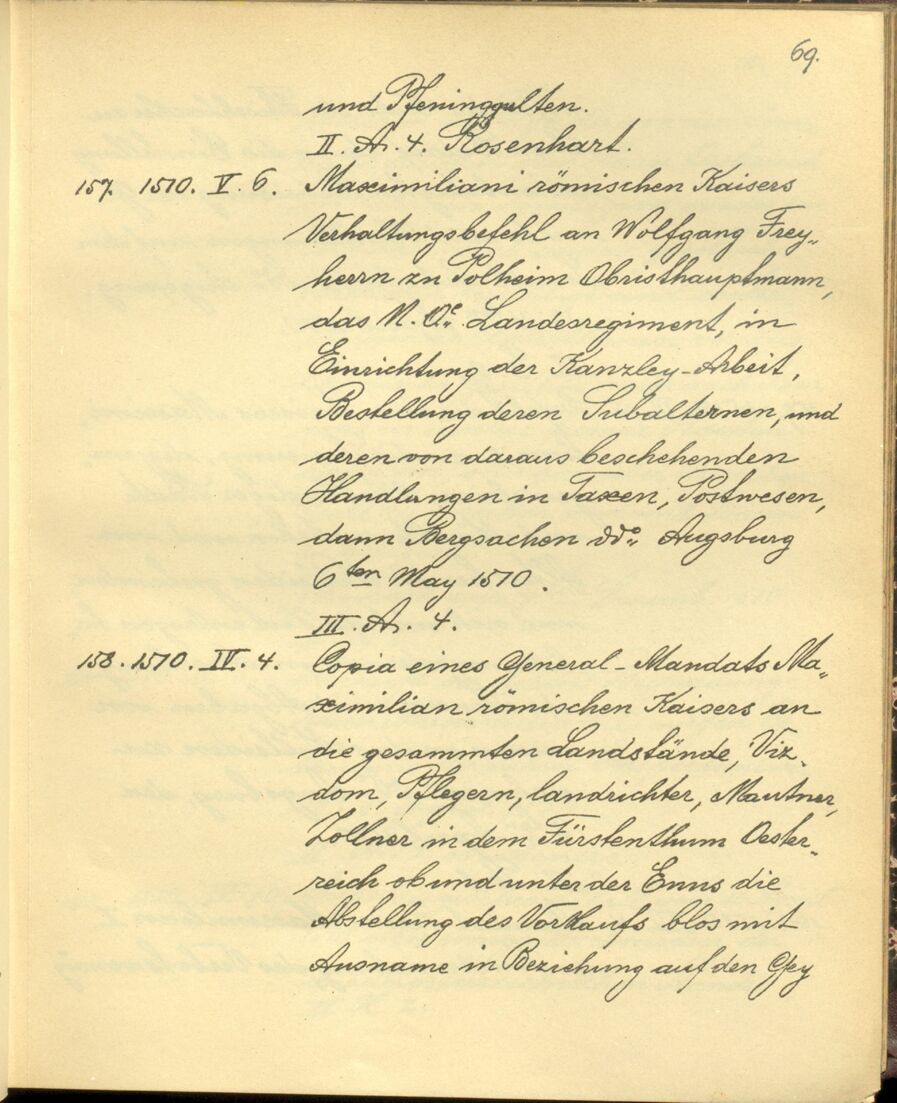 69.
und Pfeninggulten.
II. A. 4. Rosenhart.
157. 1570. V. 6. Maximiliani römischen Kaisers
Verhaltungsbefehl an Wolfgang Frey„
herrn zu Polheim Obristhauptmann,
das N. Oe. Landesregiment, in
Einrichtung der Kanzley-Arbeit,
Bestellung deren Subalternen, und
deren von daraus beschehenden
Handlungen in Taxen, Postwesen,
dann Bergsachen ddo. Augsburg
6ten May 1570.
III. A. 4.
158. 1570. IV. 4. Copia eines General-Mandats Ma„
ximilian römischen Kaisers an
die gesammten Landstände, Viz„
dom, Pflegern, landrichter, Mautner,
Zollner in dem Fürstenthum Oester„
reich ob und unter der Enns die
Abstellung des Vorkaufs blos mit
Ausname in Beziehung auf den